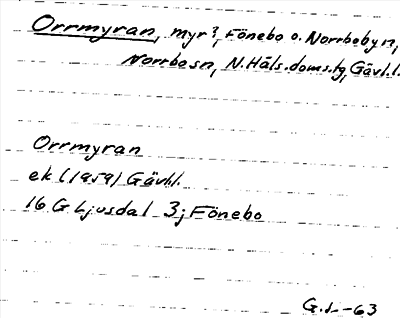 Orrmyran, myr?, Fönebo o. Norrbobyn,
Norrbosn, N. Häls. doms.tg, Gävl.l.
Orrmyran
ek (1959) Gävl.l.
16 G Ljusdal 3j Fönebo
G.L. -63